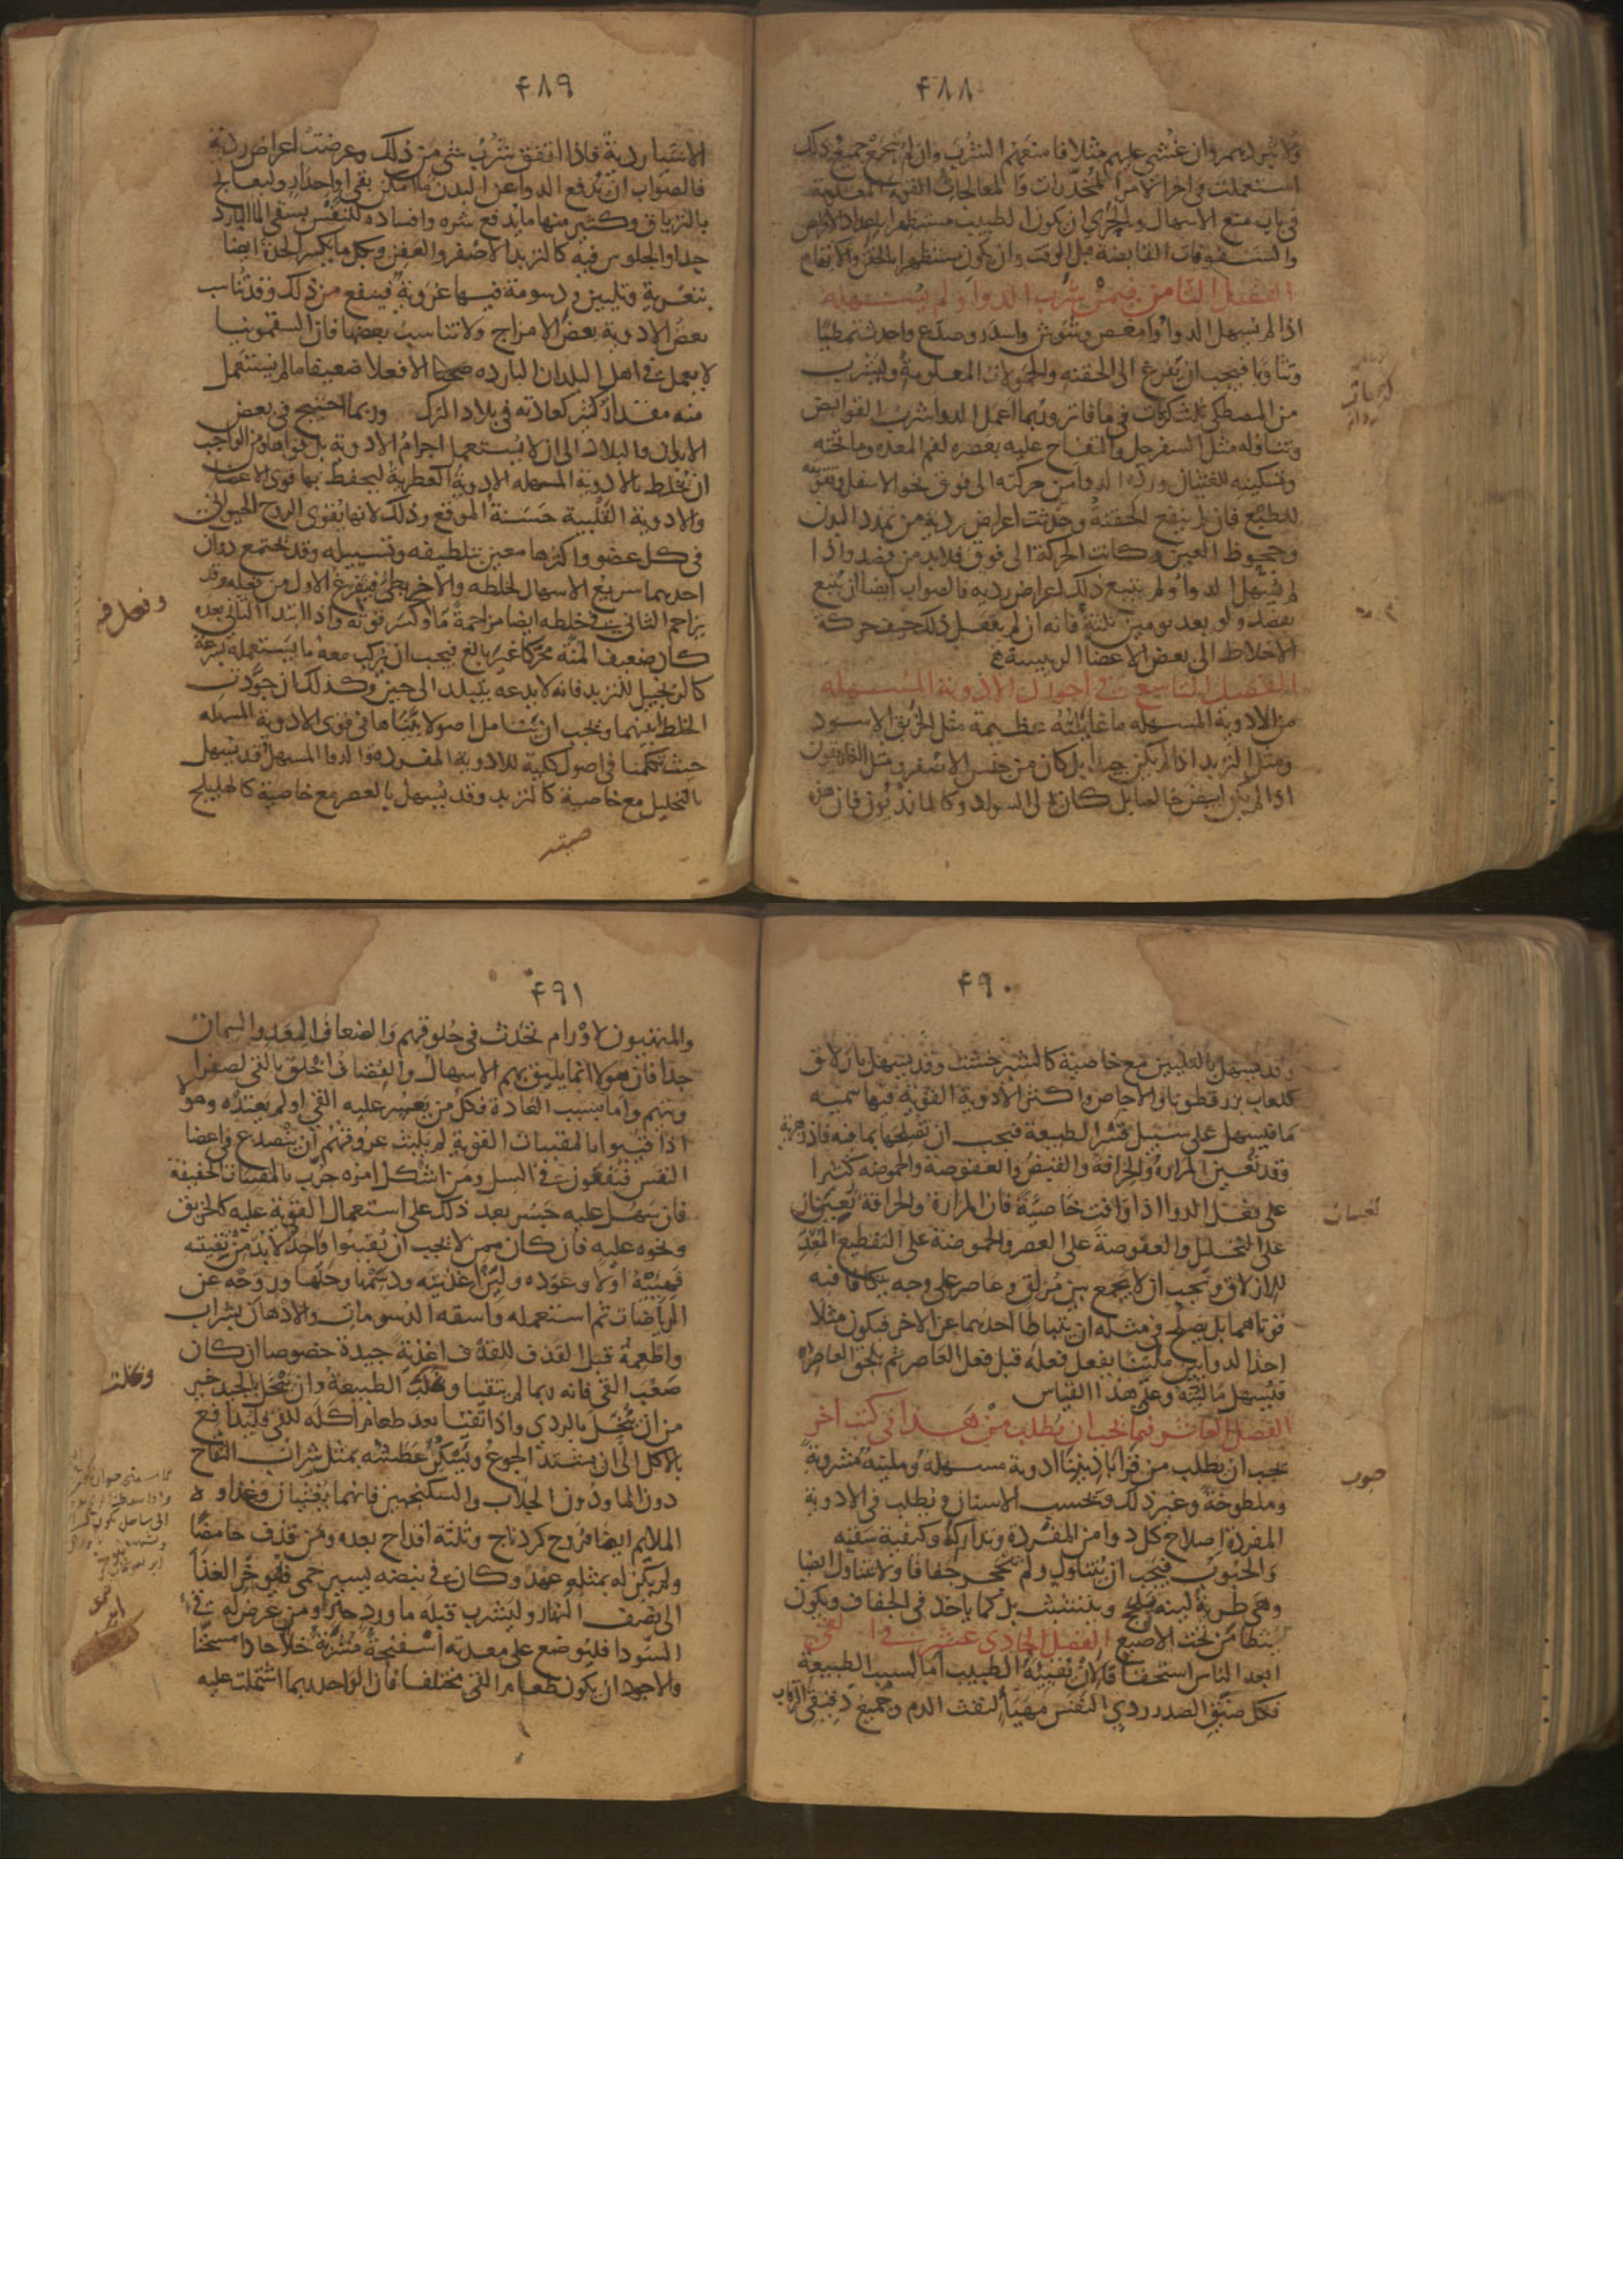 ۴۸۸
ولا يبرد بهم وان غشي عليهم مثلا فامنعهم الشرب وان لم ينجع جميع ذلك
استعملت في اخر الامر المخدرات والمعالجات القوية المعلومة
في باب منع الاسهال وبالحري ان يكون الطبيب مستظهرا باعداد الاقراص
والسفوفات القابضة قبل الوقت وان يكون مستظهرا بالحقن والاتها
الفصل الثامن فيمن شرب الدوا ولم يسهله
اذا لم يسهل الدوا وامغص وشوش واسدر وصدع واحدث تمطيا
وتثاوبا فيجب ان يفزع الى الحقنه والحمولات المعلومة وليشرب
من المصطكى ثلث كرمات في ما فاتر وربما اعمل الدوا شرب القوابض
وتناوله مثل السفرجل والتفاح عليه بعصره لفم المعده وما تحته
وتسكينه للغثيان ورده الدوا من حركته الى فوق نحو الاسفل وتقويته
للطبع فان لم ينفع الحقنة وحدثت اعراض رديه من تمدد البدن
وجحوظ العين وكانت الحركة الى فوق فلا بد من فصد واذا
لم يسهل الدوا ولم يتبع ذلك اعراض رديه فالصواب ايضا ان يتبع
بفصد ولو بعد يومين ثلثة فانه ان لم يفعل ذلك خيف حركة
الاخلاط الى بعض الاعضا الرييسة
الفصل التاسع في احوال الادوية المسهله
من الادوية المسهله ما غايلته عظيمة مثل الخربق الاسود
ومثل التربد اذا لم يكن جيدا بل كان من جنس الاصفر ومثل الغاريقون
اذا لم يكن ابيض خالصا بل كان الى السواد وكالمازريون فان هذه
۴۸۹
الاشيا ردية فاذا اتفق شرب شي من ذلك وعرضت اعراض ردية
فالصواب ان يدفع الدوا عن البدن ما امكن بقي او احدار وليعالج
بالترياق وكثير منها ما يدفع شره وافساده للنفس بسقي الما البارد
جدا والجلوس فيه كالتربد الاصفر والعفن وبكل ما يكسر الحدة ايضا
بتغرية وتليين ودسومة فيها غروية فينفع من ذلك وقد تناسب
بعض الادوية بعض الامزاج ولا تناسب بعضها فان السقمونيا
لا يعمل في اهل البلدان البارده الا فعلا ضعيفا ما لم يستعمل
منه مقدار كثير كعادته في بلاد الترك وربما احتيج في بعض
الابدان والبلاد الى ان لا يستعمل اجرام الادوية بل قواها ومن الواجب
ان يخلط بالادوية المسهله الادوية العطرية ليحفظ بها قوى الاعضا
والادوية القلبية حسنة الموقع وذلك لانها تقوى الروح الحيواني
في كل عضو واكثرها معين بتلطيفه وتسييله وقد يجتمع دواان
احدهما سريع الاسهال لخلطه والاخر بطي فيفرغ الاول من فعله وقد
يزاحم الثاني في خلطه ايضا مزاحمة ما وكسر قوته واذا ابتدا الثاني بعده
كان ضعيف المنة محركا غير بالغ فيجب ان يركب معه ما يستعمله بسرعة
كالزنجبيل للتربد فانه لا يدعه يتبلد الى حين وكذلك ان جودت
الخلط بينهما ويجب ان يتامل اصولا بيناها في قوى الادوية المسهله
حيث تكلمنا في اصول كلية للادوية المفردة والدوا المسهل قد يسهل
بالتحليل مع خاصية كالتربد وقد يسهل بالعصر مع خاصية كالهليلج
۴۹۰
وقد يسهل بالتليين مع خاصية كالشيرخشت وقد يسهل بازلاق
كلعاب بزرقطونا والاجاص واكثر الادوية القوية فيها سمية
ما فيسهل على سبيل قسر الطبيعة فيجب ان تصلحها بما فيه فاذزهرية
وقد تعين المرارة والحرافة والقبض والعفوصة والحموضه كثيرا
على فعل الدوا اذا وافت خاصية فان المرارة والحرافة تعينان
على التحليل والعفوصة على العصر والحموضة على التقطيع المعد
للازلاق ويجب ان لا يجمع بين مزلق وعاصر على وجه يتكافا فيه
قوتاهما بل يصلح في مثله ان يتباطا احدهما عن الاخر فيكون مثلا
احد الدوايين ملينا يفعل فعله قبل فعل العاصر ثم يلحق العاصر
فيسهل ما لينه وعلى هذا القياس
الفصل العاشر فيما يجب ان يطلب من هذا في كتب اخر
يجب ان يطلب من قراباديننا ادوية مسهلة وملينة مشروبة
وملطوخة وغير ذلك وبحسب الاسنان ويطلب في الادوية
المفردة اصلاح كل دوا من المفردة وتداركه وكيفية سقيه
والحبوب فيجب ان يتناول ولم تتحجر جفافا ولا تتناول ايضا
وهي طرية لينه تلحج وتتشبث بل كما ياخذ في الجفاف ويكون
يتطامن تحت الاصبع الفصل الحادي عشر في القي
ابعد الناس استحقاقا لان يقييه الطبيب اما بسبب الطبيعة
فكل ضيق الصدر ردي النفس مهيا لنفث الدم وجميع دقيقي الرقاب
۴۹۱
والمتهيون لاورام تحدث في حلوقهم والضعاف المعد والسمان
جدا فان هولا انما يليق بهم الاسهال والقضاف اخلق بالقي لصفرا
ويتهم واما بسبب العادة فكل من يعسر عليه القي او لم يعتده وهولا
اذا قييوا بالمقييات القوية لم يلبث عروقهم ان يتصدع في اعضا
النفس فيقعون في السل ومن اشكل امره جرب بالمقييات الخفيفة
فان سهل عليه جسر بعد ذلك على استعمال القوية عليه كالخربق
ونحوه عليه فان كان ممن لا يجب ان يقييوا واحد لا بد من تقييته
فهييه اولا وعوده ولين اغذيته ودسمها وحلها وروحه عن
الرياضات ثم استعمله واسقه الدسومات والادهان بشراب
واطعمه قبل القذف اغذية جيدة خصوصا ان كان
صعب القي فانه ربما لم يتقيا وغلبت الطبيعة وان تتحل بالجيد خير
من ان تتحل بالردي واذا تقيا بعد طعام اكله للقي فليدافع
بالاكل الى ان يشتد الجوع ويسكن عطشه بمثل شراب التفاح
دون الما ودون الجلاب والسكنجبين فانهما يغثيان وغذاوه
الملايم ايضا فروج كردناج وثلثة اقداح بعده ومن قذف حامضا
ولم يكن له بمثله عهد وكان في نبضه يسير حمى فليوخر الغذا
الى نصف النهار وليشرب قبله ما ورد حارا ومن عرض له في
السودا فليوضع على معدته اسفنجة مشربة خلا حارا مسخنا
والاجود ان يكون طعام القي مختلفا فان الواحد ربما اشتملت عليه